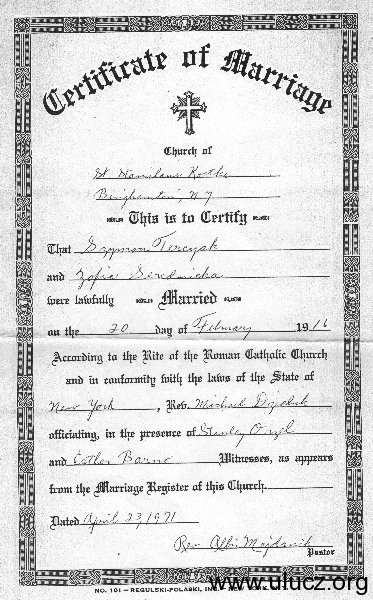 Certificate of Marriage
Church of
St Stanislaus Kostka
Binghamton, N Y
This is to Certify
That Szymon Tercyak
and Zofia Serednicka
were lawfully Married
on the 20 day of February 1916
According to the Rite of the Roman Catholic Church
and in conformity with the laws of the State of
New York, Rev. Michael
officiating, in the presence of Stanley
and Witnesses, as appears
from the Marriage Register of this Church.
Dated April 23, 1971
Rev
Pastor
NO. 101 – REGULSKI-POLASKI, INC.
www.ulucz.org